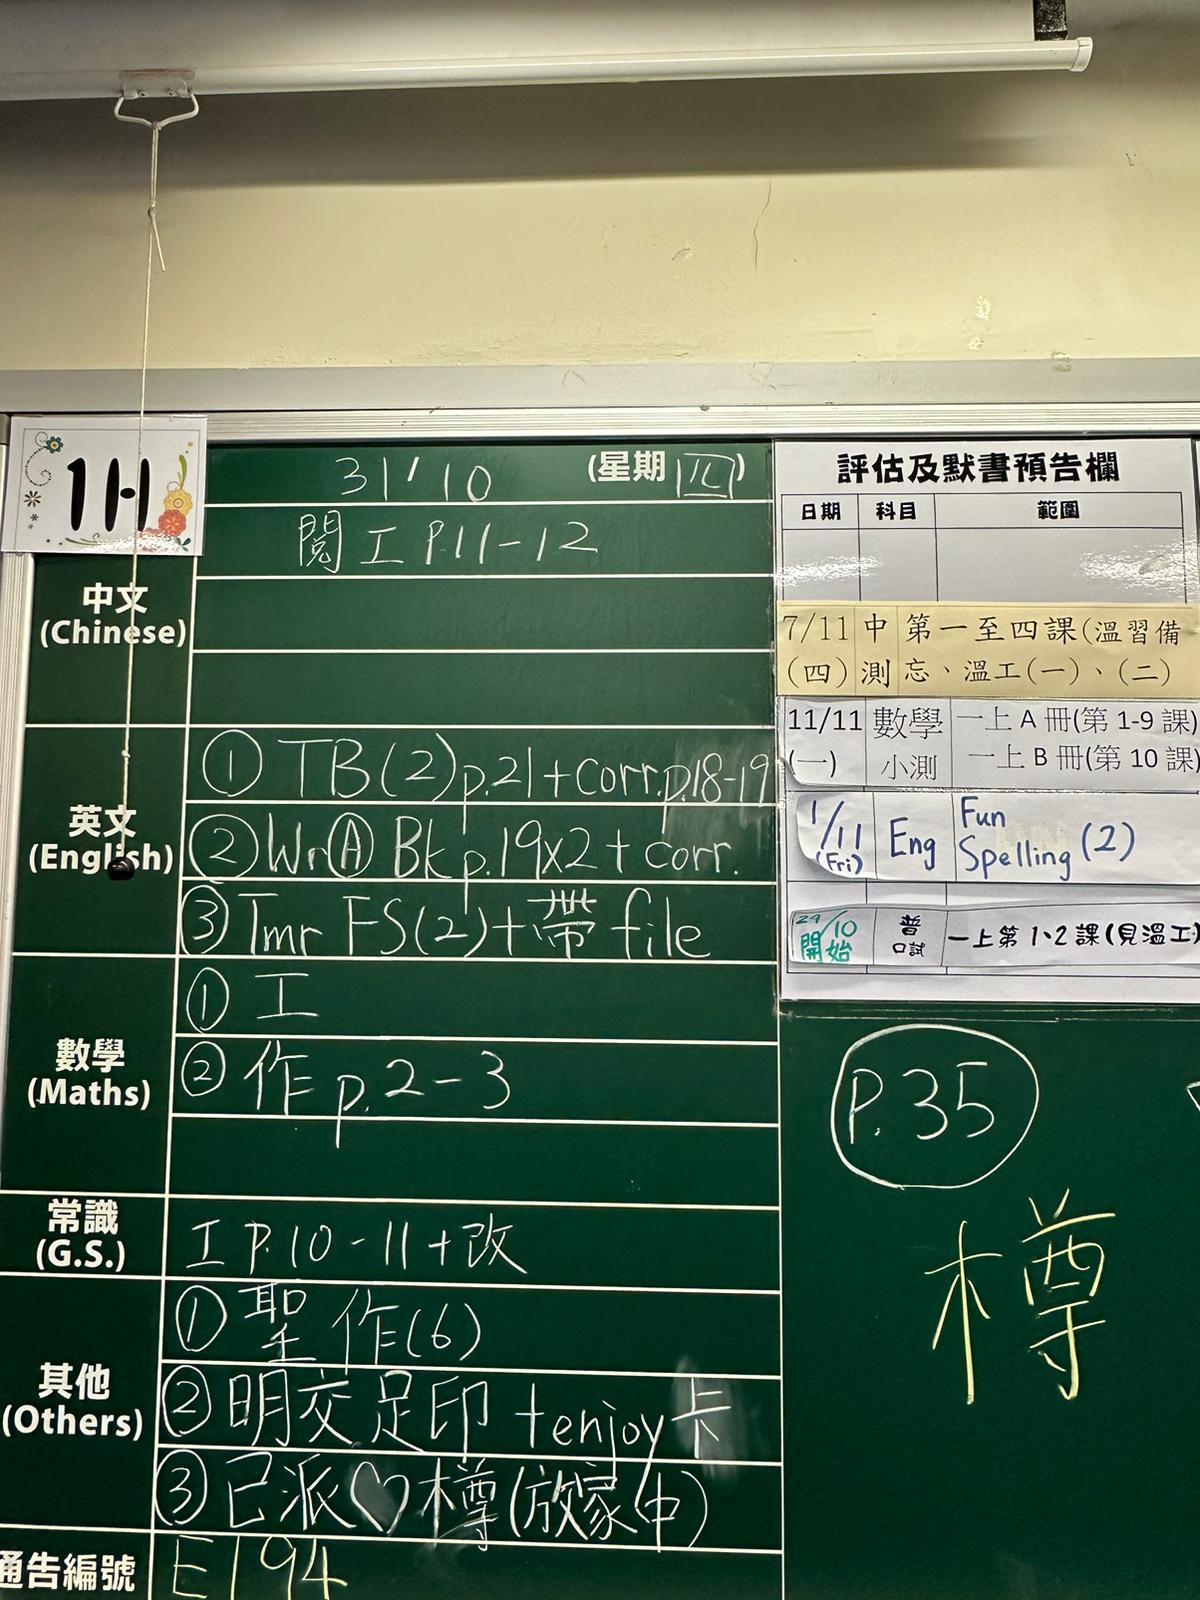 1H
31/10
(星期四)
閱工 P.11-12
中文
(Chinese)
英文
(English)
① TB(2)p.21+corr.p.18-19
② Wr(A) Bk p.19x2+ corr.
③ Tmr FS(2)+帶 file
數學
(Maths)
① 工
② 作 p.2-3
常識
(G.S.)
工 P.10-11+改
其他
(Others)
① 聖作(6)
② 明交足印 +enjoy卡
③ 已派♡樽(放家中)
通告編號
E194
評估及默書預告欄
日期 科目 範圍
7/11 中 第一至四課(溫習備
(四) 測 忘、溫工(一)、(二)
11/11 數學 一上 A 冊(第 1-9 課)
(一) 小測 一上 B 冊(第 10 課)
1/11 Eng Fun
(Fri) Spelling (2)
29/10 普 一上第1、2課(見溫工)
開始 口試
P.35
樽